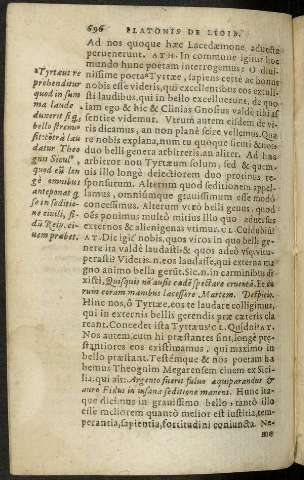 696 PLATONIS DE LEGIB.
Ad nos quoque hæc Lacedæmone, aduecta
peruenerunt. ATH. In commune igitur hoc
modo hunc poetam interrogemus: O diui-
nissime poeta Tyrtæe, sapiens certe ac bonus
nobis esse videris, qui excellentibus eos extuli-
sti laudibus, qui in bello excelluerunt, de quo
iam ego & hic & Clinias Gnosius valde tibi as-
sentire videmur. Vtrum autem eisdem de vi-
ris dicamus, an non planè seize vellemus. Qua-
re nobis explana, num tu quoque sicuti & nos
duo belli genera arbitreris: an aliter. Ad hæc
arbitror non Tyrtæum solum, sed & quem-
uis illo longè deteriorem duo protinus re-
sponsurum. Alterum quod seditionem appel-
lamus, omniúmque grauissimum esse modò
concessimus. Alterum verò belli genus, quod
oẽs ponimus multò mitius illo quo aduersus
externos & alienigenas vtimur. CL. Cuidubiũ?
AT. Dic igit' nobis, quos viros in quo belli ge-
nere ita valdè laudasti: & quos adeò vituperasti?
Videris.n. eos laudasse, qui externa ma-
gno animo bella gerũt. Sic.n. in carminibus di-
xisti, Quisquis nõ ausit cædẽ spectare cruentã. Et co-
rum coram manibus lacessere Martem. Despicio.
Hinc nos, ô Tyrtæe, eos te laudare colligimus,
qui in externis bellis gerendis præ cæteris cla
reant. Concedet ista Tyrtæus? CL. Quidni? AT.
Nos autem, cum hi præstantes sint, longè præ-
stantiores eos existimamus, qui maximo in
bello præstant. Testémque & nos poetam ha
bemus Theognim Megarensem ciuem ex Sici-
lia, qui ait: Argento fuerit fuluo æquiparandus &
auro Fidus in insana seditione manens. Hunc ita-
que dicimus in grauissimo bello, tantò illo
esse meliorem quantò melior est iustitia, tem-
perantia, sapientia, fortitudini coniuncta. Ne-
me
a Tyrtæus re
prehenditur
quod in sum
ma laude
duxerit sĩg.
bello strenuo
fortior à lau
datur Theo
gnis Sicus
quod eũ lon
gè omnibus
anteponat q̃
se in seditio-
ne ciuili, fi-
dũ Reip. ci-
uem præbet.